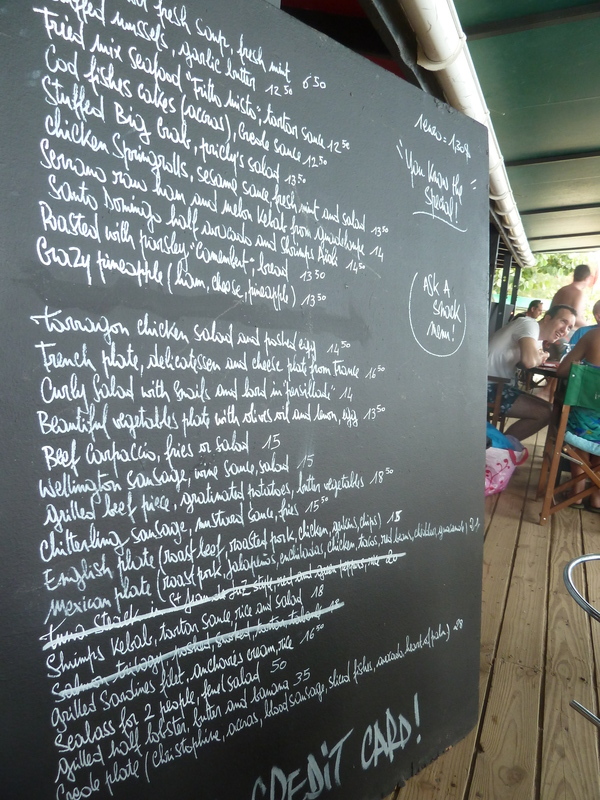 fresh soup, fresh mint 6 50
mussels, garlic butter 12 50
Fried mix seafood "Fritto misto", tartar sauce 12 50
Cod fishes cakes (accras), creole sauce 12 50
Stuffed Big Crab, prickly's salad 13 50
chicken Springrolls, sesame sauce, fresh mint and salad 13 50
Serrano raw ham and melon Kebab from guadeloupe 14
Santo Domingo half avocado and shrimps 14 50
Roasted with parsley "Camembert", bread 13 50
Crazy pineapple (ham, cheese, pineapple) 13 50
Tarragon chicken salad and poshed egg 14 50
French plate, delicatessen and cheese plate from France 16 50
Curly Salad with Snails and lard in "persillade" 14
Beautiful vegetables plate with olives oil and lemon, egg 13 50
Beef Carpaccio, fries or salad 15
Wellington sausage, wine sauce, salad 15
grilled beef piece, gratinated potatoes, butter vegetables 18 50
chitterling sausage, mustard sauce, fries 15 50
English plate (roast beef, roasted pork, chicken, gerkins, chips) 18
Mexican plate (roast pork, jalapenos, enchiladas, chicken, tacos, red bean, cheddar, guacamole) 21
Tuna steack in St Jean de Luz style, red and green peppers, rice 20
Shrimps Kebab, tartar sauce, rice and salad 18
grilled Sardines filet, anchovies cream, rice 16 50
Seabass for 2 people, fenel salad 50
grilled half lobster, butter and banana 35
Creole plate (christophine, accras, blood sausage, sliced fishes, avocado, heart of palm) 28
CREDIT CARD!
"You Know the
Special!"
ASK A
snack
menu!